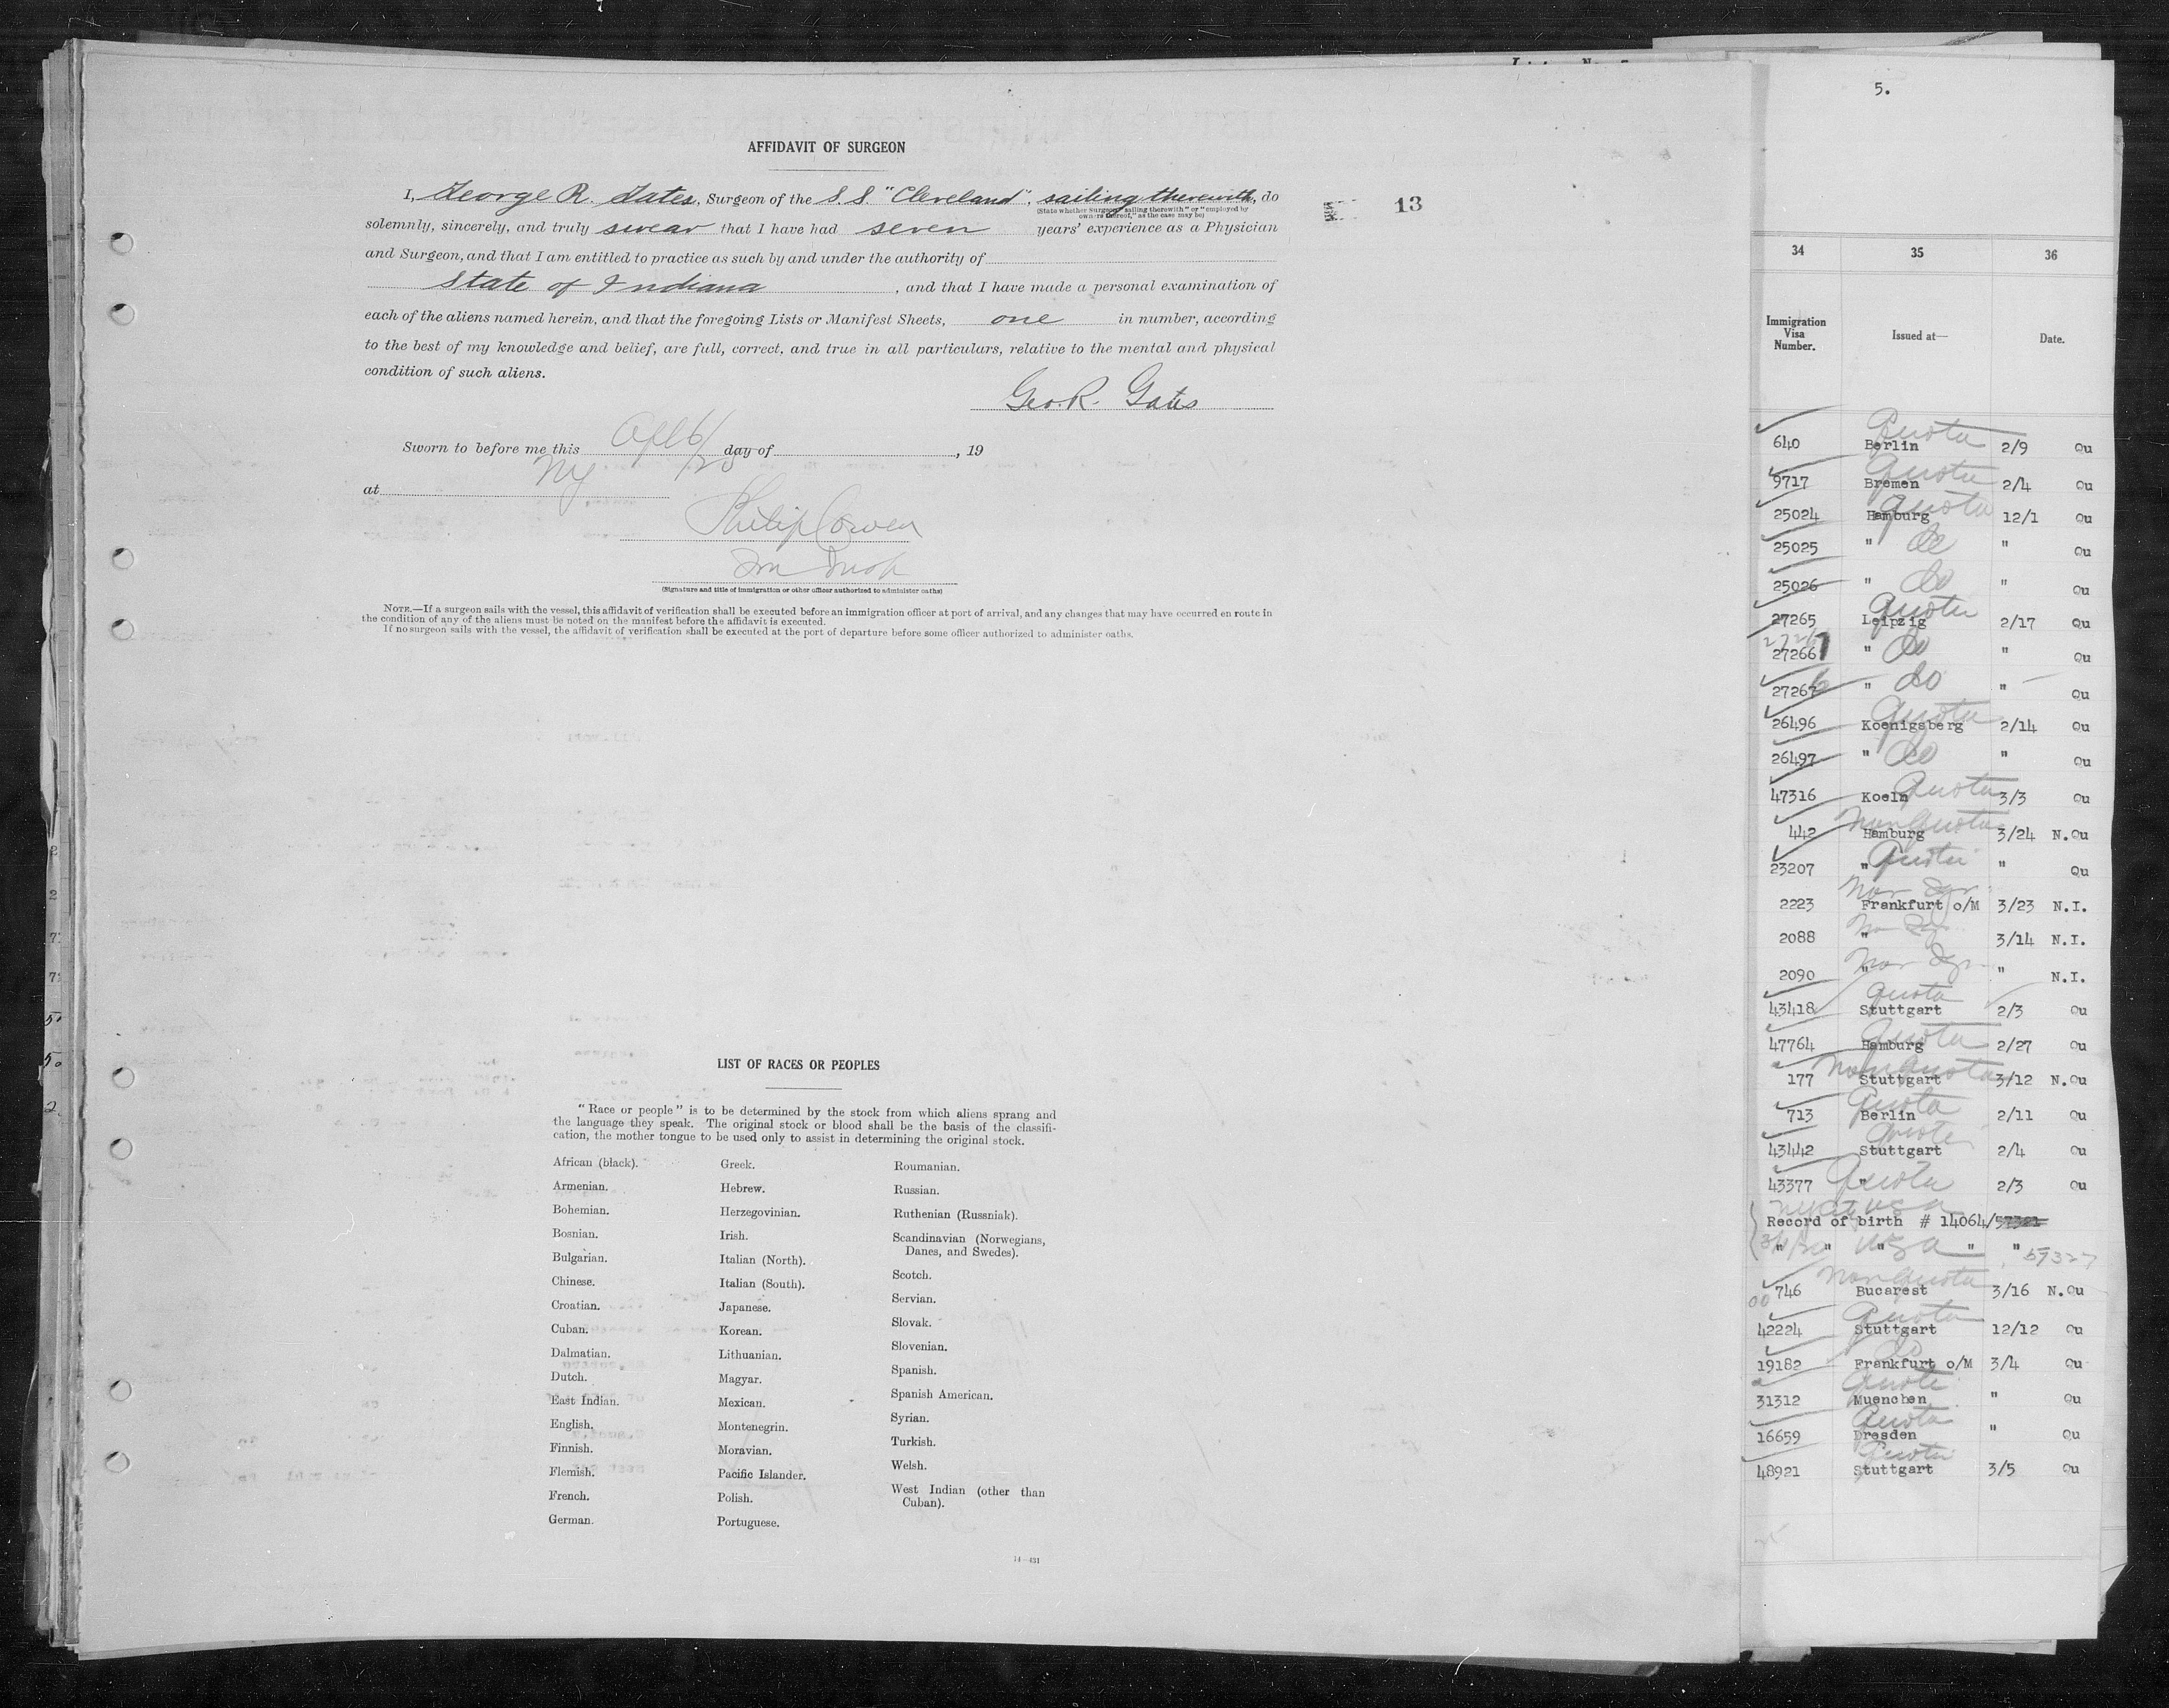 5.
AFFIDAVIT OF SURGEON
13
I, George R. Gates, Surgeon of the S.S. "Cleveland", sailing therewith, do
(State whether Surgeon "sailing therewith" or "employed by
owners thereof," as the case may be)
solemnly, sincerely, and truly swear that I have had seven years' experience as a Physician
and Surgeon, and that I am entitled to practice as such by and under the authority of
State of Indiana, and that I have made a personal examination of
each of the aliens named herein, and that the foregoing Lists or Manifest Sheets, one in number, according
to the best of my knowledge and belief, are full, correct, and true in all particulars, relative to the mental and physical
condition of such aliens.
Geo. R. Gates
Sworn to before me this day of , 19
at NY
Philip Cowen
(Signature and title of immigration or other officer authorized to administer oaths)
NOTE.—If a surgeon sails with the vessel, this affidavit of verification shall be executed before an immigration officer at port of arrival, and any changes that may have occurred en route in
the condition of any of the aliens must be noted on the manifest before the affidavit is executed.
If no surgeon sails with the vessel, the affidavit of verification shall be executed at the port of departure before some officer authorized to administer oaths.
LIST OF RACES OR PEOPLES
"Race or people" is to be determined by the stock from which aliens sprang and
the language they speak. The original stock or blood shall be the basis of the classifi-
cation, the mother tongue to be used only to assist in determining the original stock.
African (black).
Armenian.
Bohemian.
Bosnian.
Bulgarian.
Chinese.
Croatian.
Cuban.
Dalmatian.
Dutch.
East Indian.
English.
Finnish.
Flemish.
French.
German.
Greek.
Hebrew.
Herzegovinian.
Irish.
Italian (North).
Italian (South).
Japanese.
Korean.
Lithuanian.
Magyar.
Mexican.
Montenegrin.
Moravian.
Pacific Islander.
Polish.
Portuguese.
Roumanian.
Russian.
Ruthenian (Russniak).
Scandinavian (Norwegians,
Danes, and Swedes).
Scotch.
Servian.
Slovak.
Slovenian.
Spanish.
Spanish American.
Syrian.
Turkish.
Welsh.
West Indian (other than
Cuban).
14—431
34 35 36
Immigration
Visa
Number.
Issued at—
Date.
Quota
640 Berlin 2/9 Qu
Quota
9717 Bremen 2/4 Qu
Quota
25024 Hamburg 12/1 Qu
25025 " do " Qu
25026 " do " Qu
Quota
27265 Leipzig 2/17 Qu
27266 " do " Qu
27267 " do " Qu
Quota
26496 Koenigsberg 2/14 Qu
26497 " do " Qu
47316 Koeln Quota 3/3 Qu
Non Quota
442 Hamburg 3/24 N.Qu
23207 " Quota " Qu
2223 Frankfurt o/M 3/23 N.I.
2088 " 3/14 N.I.
2090 " " N.I.
Quota
43418 Stuttgart 2/3 Qu
Quota
47764 Hamburg 2/27 Qu
Non Quota
177 Stuttgart 3/12 N.Qu
Quota
713 Berlin 2/11 Qu
Quota
43442 Stuttgart 2/4 Qu
Quota
43377 " 2/3 Qu
Record of birth # 14064/57321
" " " USA " " 57327
Non Quota
746 Bucarest 3/16 N.Qu
Quota
42224 Stuttgart 12/12 Qu
do
19182 Frankfurt o/M 3/4 Qu
Quota
31312 Muenchen " Qu
Quota
16659 Dresden " Qu
Quota
48921 Stuttgart 3/5 Qu